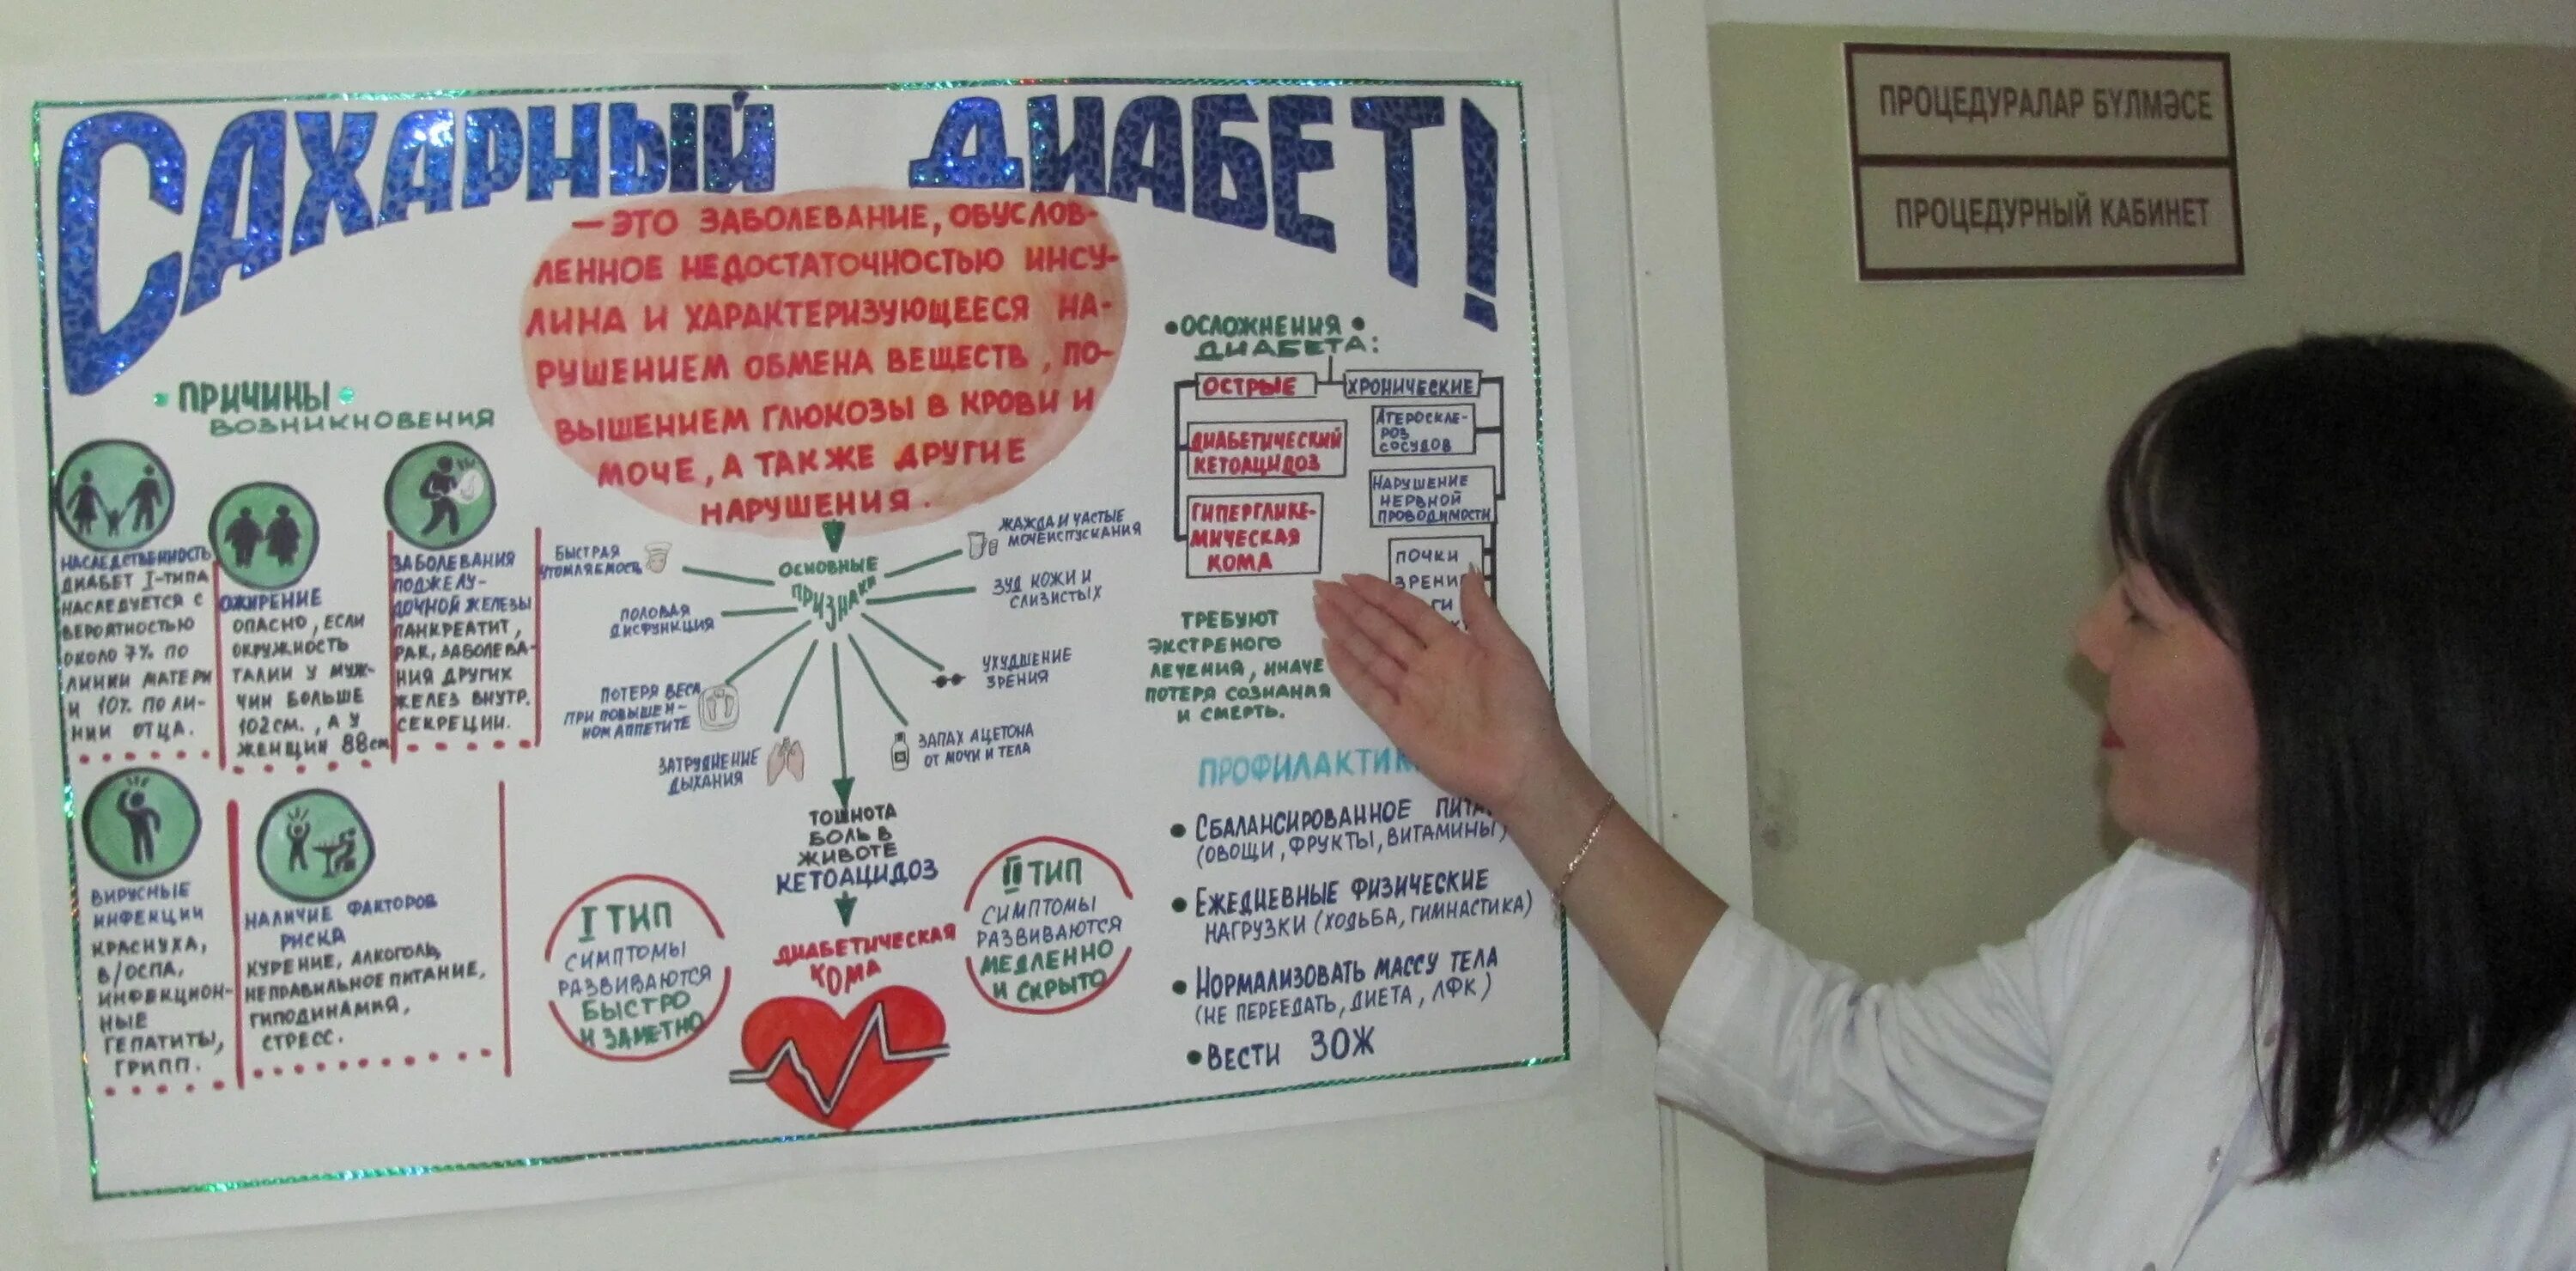 САХАРНЫЙ ДИАБЕТ!
— ЭТО ЗАБОЛЕВАНИЕ, ОБУСЛОВ-
ЛЕННОЕ НЕДОСТАТОЧНОСТЬЮ ИНСУ-
ЛИНА И ХАРАКТЕРИЗУЮЩЕЕСЯ НА-
РУШЕНИЕМ ОБМЕНА ВЕЩЕСТВ, ПО-
ВЫШЕНИЕМ ГЛЮКОЗЫ В КРОВИ И
МОЧЕ, А ТАКЖЕ ДРУГИЕ
НАРУШЕНИЯ.
• ПРИЧИНЫ •
ВОЗНИКНОВЕНИЯ
НАСЛЕДСТВЕННОСТЬ
ДИАБЕТ I-ТИПА
НАСЛЕДУЕТСЯ С
ВЕРОЯТНОСТЬЮ
ОКОЛО 7% ПО
ЛИНИИ МАТЕРИ
И 10% ПО ЛИ-
НИИ ОТЦА.
ОЖИРЕНИЕ
ОПАСНО, ЕСЛИ
ОКРУЖНОСТЬ
ТАЛИИ У МУЖ-
ЧИН БОЛЬШЕ
102 СМ., А У
ЖЕНЩИН 88см
ЗАБОЛЕВАНИЯ
ПОДЖЕЛУ-
ДОЧНОЙ ЖЕЛЕЗЫ
ПАНКРЕАТИТ,
РАК, ЗАБОЛЕВА-
НИЯ ДРУГИХ
ЖЕЛЕЗ ВНУТР.
СЕКРЕЦИИ.
ВИРУСНЫЕ
ИНФЕКЦИИ
КРАСНУХА,
В/ОСПА,
ИНФЕКЦИОН-
НЫЕ
ГЕПАТИТЫ,
ГРИПП.
НАЛИЧИЕ ФАКТОРОВ
РИСКА
КУРЕНИЕ, АЛКОГОЛЬ,
НЕПРАВИЛЬНОЕ ПИТАНИЕ,
ГИПОДИНАМИЯ,
СТРЕСС.
ОСНОВНЫЕ
ПРИЗНАКИ
БЫСТРАЯ
УТОМЛЯЕМОСТЬ
ПОЛОВАЯ
ДИСФУНКЦИЯ
ПОТЕРЯ ВЕСА
ПРИ ПОВЫШЕН-
НОМ АППЕТИТЕ
ЗАТРУДНЕНИЕ
ДЫХАНИЯ
ЖАЖДА И ЧАСТЫЕ
МОЧЕИСПУСКАНИЯ
ЗУД КОЖИ И
СЛИЗИСТЫХ
УХУДШЕНИЕ
ЗРЕНИЯ
ЗАПАХ АЦЕТОНА
ОТ МОЧИ И ТЕЛА
ТОШНОТА
БОЛЬ В
ЖИВОТЕ
КЕТОАЦИДОЗ
ДИАБЕТИЧЕСКАЯ
КОМА
I ТИП
СИМПТОМЫ
РАЗВИВАЮТСЯ
БЫСТРО
И ЗАМЕТНО
II ТИП
СИМПТОМЫ
РАЗВИВАЮТСЯ
МЕДЛЕННО
И СКРЫТО
• ОСЛОЖНЕНИЯ •
ДИАБЕТА:
ОСТРЫЕ
ДИАБЕТИЧЕСКИЙ
КЕТОАЦИДОЗ
ГИПЕРГЛИКЕ-
МИЧЕСКАЯ
КОМА
ХРОНИЧЕСКИЕ
АТЕРОСКЛЕ-
РОЗ
СОСУДОВ
НАРУШЕНИЕ
НЕРВНОЙ
ПРОВОДИМОСТИ
ПОЧКИ
ЗРЕНИ
ГИ
ТРЕБУЮТ
ЭКСТРЕНОГО
ЛЕЧЕНИЯ, ИНАЧЕ
ПОТЕРЯ СОЗНАНИЯ
И СМЕРТЬ.
ПРОФИЛАКТИК
• СБАЛАНСИРОВАННОЕ ПИТА
(ОВОЩИ, ФРУКТЫ, ВИТАМИНЫ)
• ЕЖЕДНЕВНЫЕ ФИЗИЧЕСКИЕ
НАГРУЗКИ (ХОДЬБА, ГИМНАСТИКА)
• НОРМАЛИЗОВАТЬ МАССУ ТЕЛА
(НЕ ПЕРЕЕДАТЬ, ДИЕТА, ЛФК)
• ВЕСТИ ЗОЖ
ПРОЦЕДУРАЛАР БҮЛМӘСЕ
ПРОЦЕДУРНЫЙ КАБИНЕТ